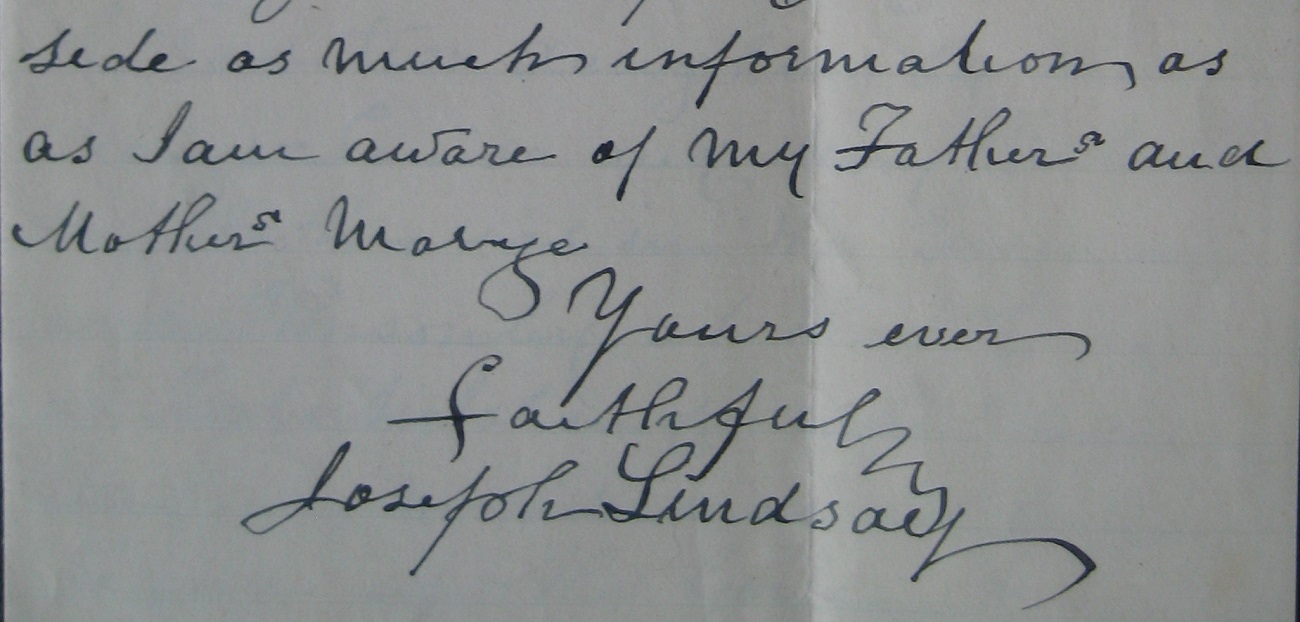 side as much information, as
as I am aware of my Fathers and
Mothers Marige
Yours ever
faithfully
Joseph Lindsay